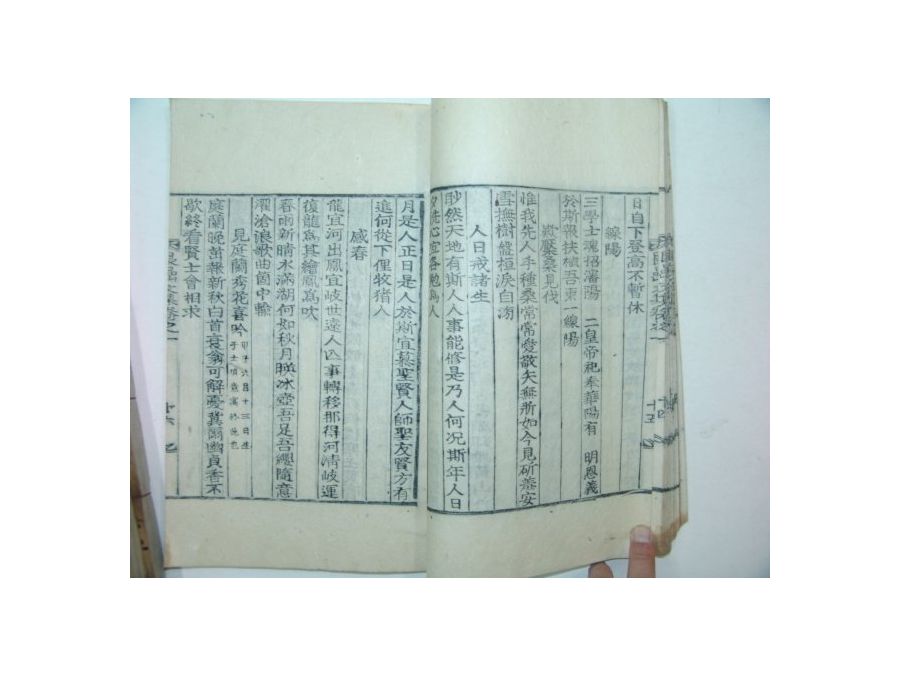 日自下登高不暫休
線陽
三學士魂招瀋陽 二皇帝祀奉華陽有 明恩義
於斯報扶植吾東一線陽
桑見伐
惟我先人手種桑常常愛敬矢無斫如今見斫安
雪撫樹盤桓淚自滂
人日戒諸生
眇然天地有斯人人事能修是乃人何况斯年人日
心宜各勉爲人
月是人正日是人於斯宜慕聖賢人師聖友賢方有
進何從下俚牧猪人
感春
龍宜河出鳳宜岐世遠人亾事轉移那得河淸岐運
復龍爲其繪鳳爲吹
春雨新晴水滿湖何如秋月暎冰壺吾足吾纓隨意
濯滄浪歌曲箇中輸
見庭蘭秀花喜吟
甲子六月十三日生
庭蘭晚茁報新秋白首衰翁可解憂冀爾幽貞香不
歇終看賢士會相求
十六
十五